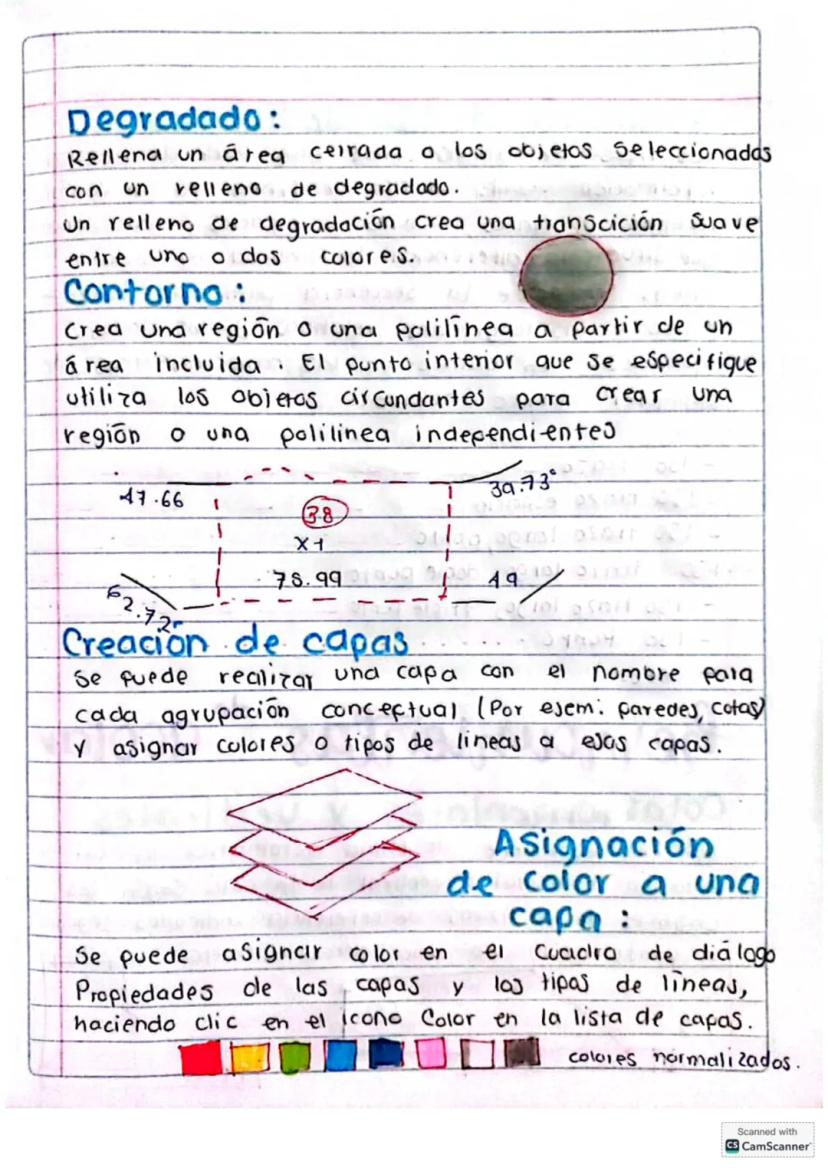 Degradado:
Rellena un área cerrada o los objetos seleccionadas
con un relleno de degradado.
Un relleno de degradación crea una transcición suave
entre uno o dos colores.
Contorno:
Crea una región o una polilínea a partir de un
área incluida. El punto interior que se especifique
utiliza los objetos circundantes para crear una
región o una polilínea independientes
47.66
39.73°
38
x1
78.99
49
62.72°
Creación de capas
Se puede realizar una capa con el nombre para
cada agrupación conceptual (Por ejem: paredes, cotas)
y asignar colores o tipos de líneas a esas capas.
Asignación
de color a una
capa:
Se puede asignar color en el cuadro de diálogo
Propiedades de las capas y los tipos de líneas,
haciendo clic en el icono Color en la lista de capas.
colores normalizados.
Scanned with
CS CamScanner